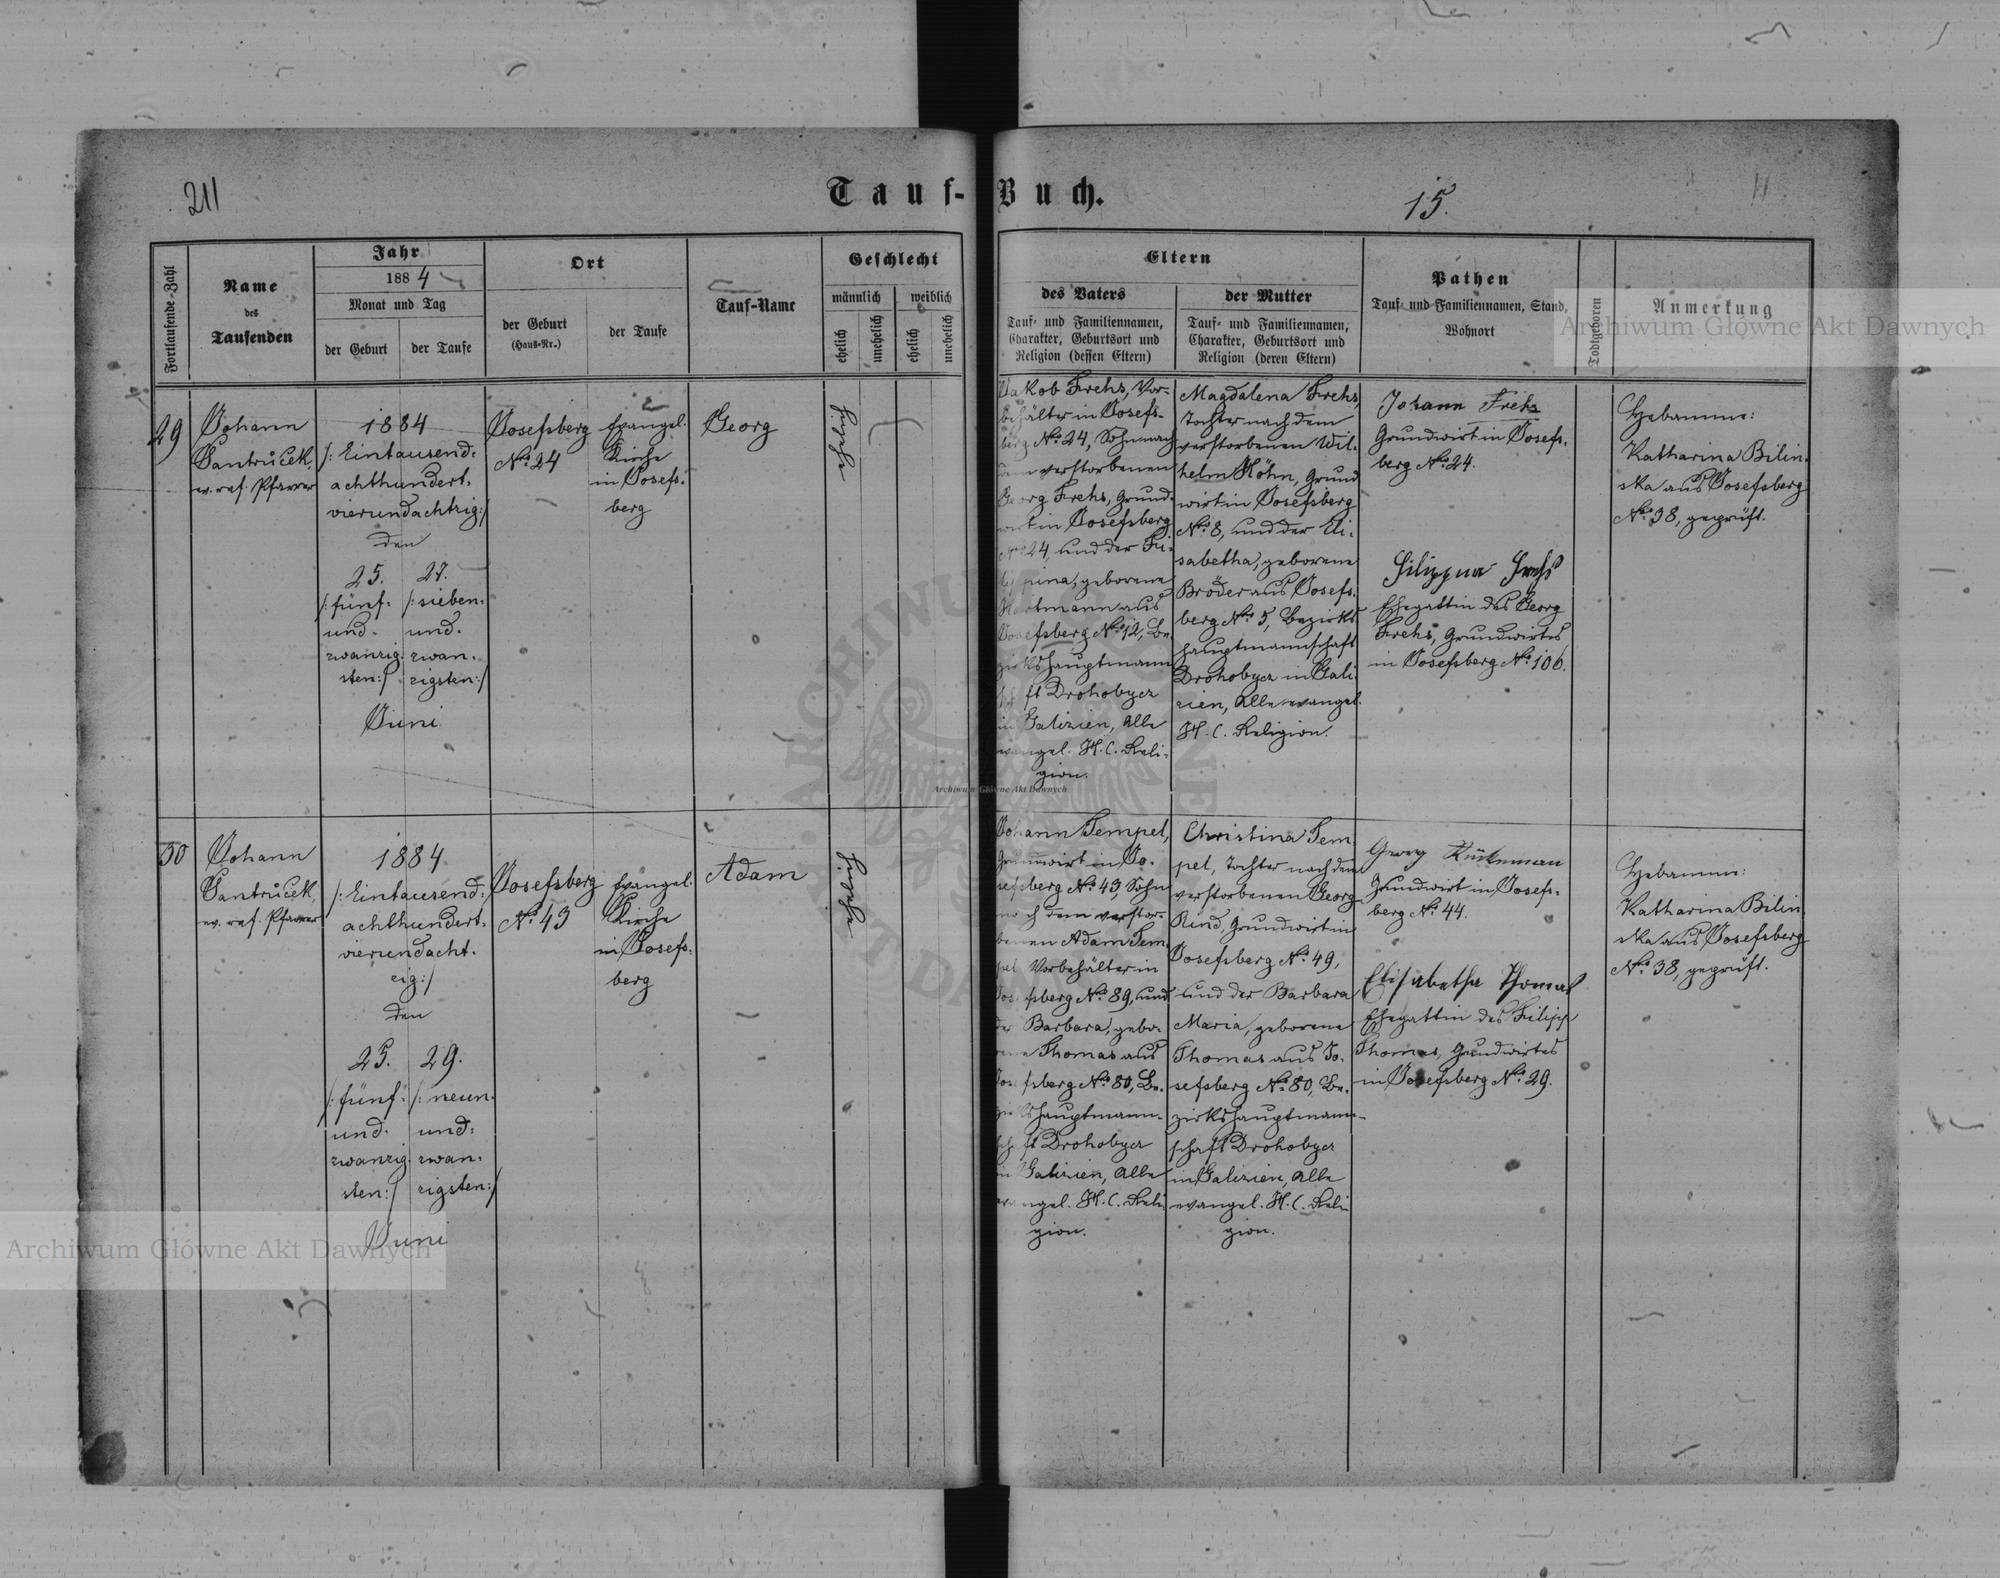 211
Tauf-Buch.
15.
11
Fortlaufende-Zahl
Name
des
Taufenden
Jahr
1884
Monat und Tag
der Geburt
der Taufe
Ort
der Geburt
(Haus-Nr.)
der Taufe
Tauf-Name
Geschlecht
männlich
weiblich
ehelich
unehelich
ehelich
unehelich
Eltern
des Vaters
Tauf- und Familiennamen,
Charakter, Geburtsort und
Religion (dessen Eltern)
der Mutter
Tauf- und Familiennamen,
Charakter, Geburtsort und
Religion (deren Eltern)
Pathen
Tauf- und Familiennamen, Stand,
Wohnort
Todtgeboren
Anmerkung
Archiwum Główne Akt Dawnych
29
Johann
Santrůček,
ev. ref. Pfarrer
1884
/: Eintausend-
achthundert-
vierundachtzig:/
den
25.
/: fünf-
und-
zwanzig-
sten:/
27.
/: sieben-
und-
zwan-
zigsten:/
Juni
Josefsberg
No. 24
Evangel.
Kirche
in Josefs-
berg
Georg
Jakob Frehs, Vor-
behälter in Josefs-
berg No. 24, Sohn nach
dem verstorbenen
Georg Frehs, Grund-
wirt in Josefsberg
No. 24, und der Fi-
lippina, geborene
Hartmann aus
Josefsberg No. 12, Be-
zirkshauptmann-
schaft Drohobycz
in Galizien, Alle
evangel. H. C. Reli-
gion.
Magdalena Frehs,
Tochter nach dem
verstorbenen Wil-
helm Köhn, Grund
wirt in Josefsberg
No. 8, und der Eli-
sabetha, geborene
Bröder aus Josefs-
berg No. 5, Bezirks
hauptmannschaft
Drohobycz in Gali
zien, Alle evangel.
H. C. Religion.
Johann Frehs
Grundwirt in Josefs-
berg No. 24.
Filippina Frehs
Ehegattin des Georg
Frehs, Grundwirtes
in Josefsberg No. 106.
Hebamme:
Katharina Bilin-
ska aus Josefsberg
No. 38, geprüft.
Archiwum Główne Akt Dawnych
30
Johann
Santrůček,
ev. ref. Pfarrer
1884
/: Eintausend-
achthundert-
vierundacht-
zig:/
den
25.
/: fünf-
und-
zwanzig-
sten:/
29.
/: neun-
und-
zwan-
zigsten:/
Juni
Josefsberg
No. 43
Evangel.
Kirche
in Josefs-
berg
Adam
Johann Tempel,
Grundwirt in Jo-
sefsberg No. 43, Sohn
nach dem verstor-
benen Adam Tem-
pel, Vorbehälter in
Josefsberg No. 89, und
der Barbara, gebo-
rene Thomas aus
Josefsberg No. 80, Be-
zirkshauptmann-
schaft Drohobycz
in Galizien, Alle
evangel. H. C. Reli
gion.
Christina Tem
pel, Tochter nach dem
verstorbenen Georg
Rind, Grundwirt in
Josefsberg No. 49,
und der Barbara
Maria, geborene
Thomas aus Jo-
sefsberg No. 80, Be-
zirkshauptmann-
schaft Drohobycz
in Galizien, Alle
evangel. H. C. Reli
gion.
Georg
Grundwirt in Josefs-
berg No. 44.
Elisabetha Thomas
Ehegattin des Filipp
Thomas, Grundwirtes
in Josefsberg No. 29.
Hebamme:
Katharina Bilin
ska aus Josefsberg
No. 38, geprüft.
Archiwum Główne Akt Dawnych